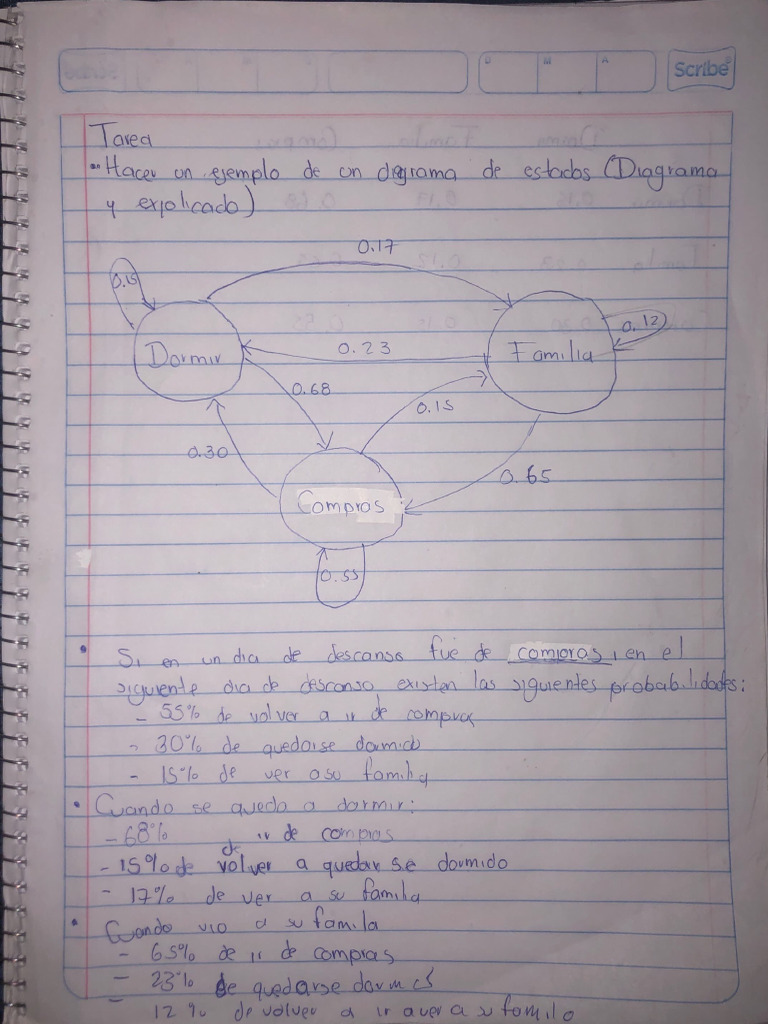 D M A Scribe
Tarea
- Hacer un ejemplo de un digrama de estados (Diagrama
y explicado)
0.17
0.15
0.12
Dormir
0.23
Familia
0.68
0.15
0.30
0.65
Compras
0.55
• Si en un dia de descanso fue de compras, en el
siguiente dia de descanso existen las siguientes probabilidades:
- 55% de volver a ir de compras
- 30% de quedarse dormido
- 15% de ver a su familia
• Cuando se queda a dormir:
- 68% de ir de compras
- 15% de volver a quedar se dormido
- 17% de ver a su familia
• Cuando vio a su familia
- 65% de ir de compras
- 23% de quedarse dormido
- 12% de volver a ir a ver a su familia